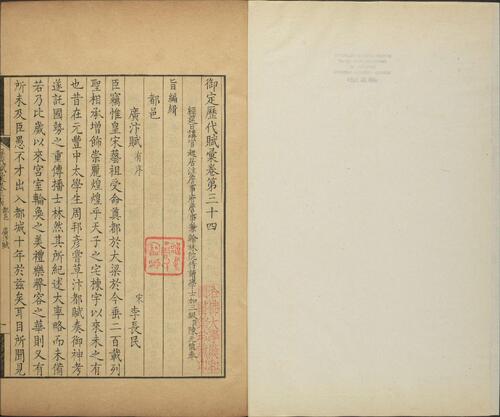 御定歷代賦彙卷第三十四
經筵日講官起居注詹事府詹事兼翰林院侍讀學士加三級臣陳元龍奉
旨編緝
都邑
廣汴賦有序
宋李長民
臣竊惟皇宋藝祖受命奠都於大梁於今垂二百載列
聖相承增飾崇麗煌煌乎天子之宅棟宇以來未之有
也昔在元豐中太學生周邦彥嘗草汴都賦奏御神考
遂託國勢之重傳播士林然其所紀述大率略而未備
若乃比歲以來宮室輪奐之美禮樂聲容之華則又有
所未及臣愚不才出入都城十年於茲矣耳目所聞見